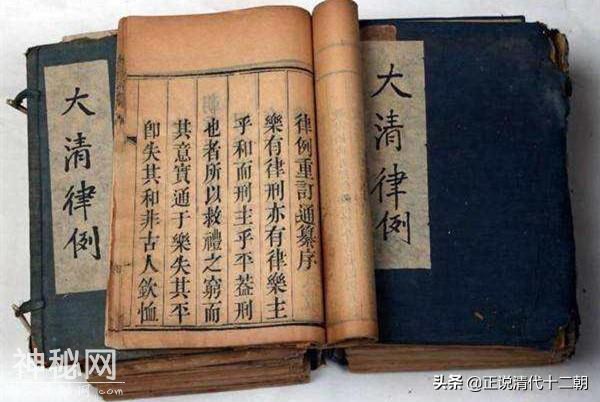 大清律例
律例重訂通纂序
樂有律刑亦有律樂主
乎和而刑主乎平蓋刑
也者所以救禮之窮而
其意實通于樂失其平
卽失其和非古人欽恤
大清律例
神秘网
头条 @正说清代十二朝